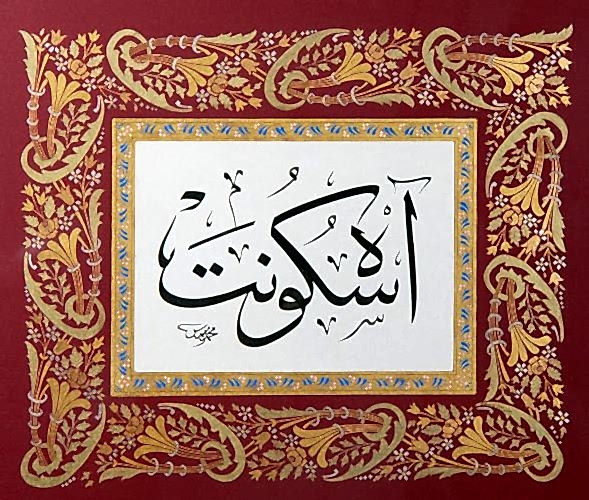 آه سُكُونَت